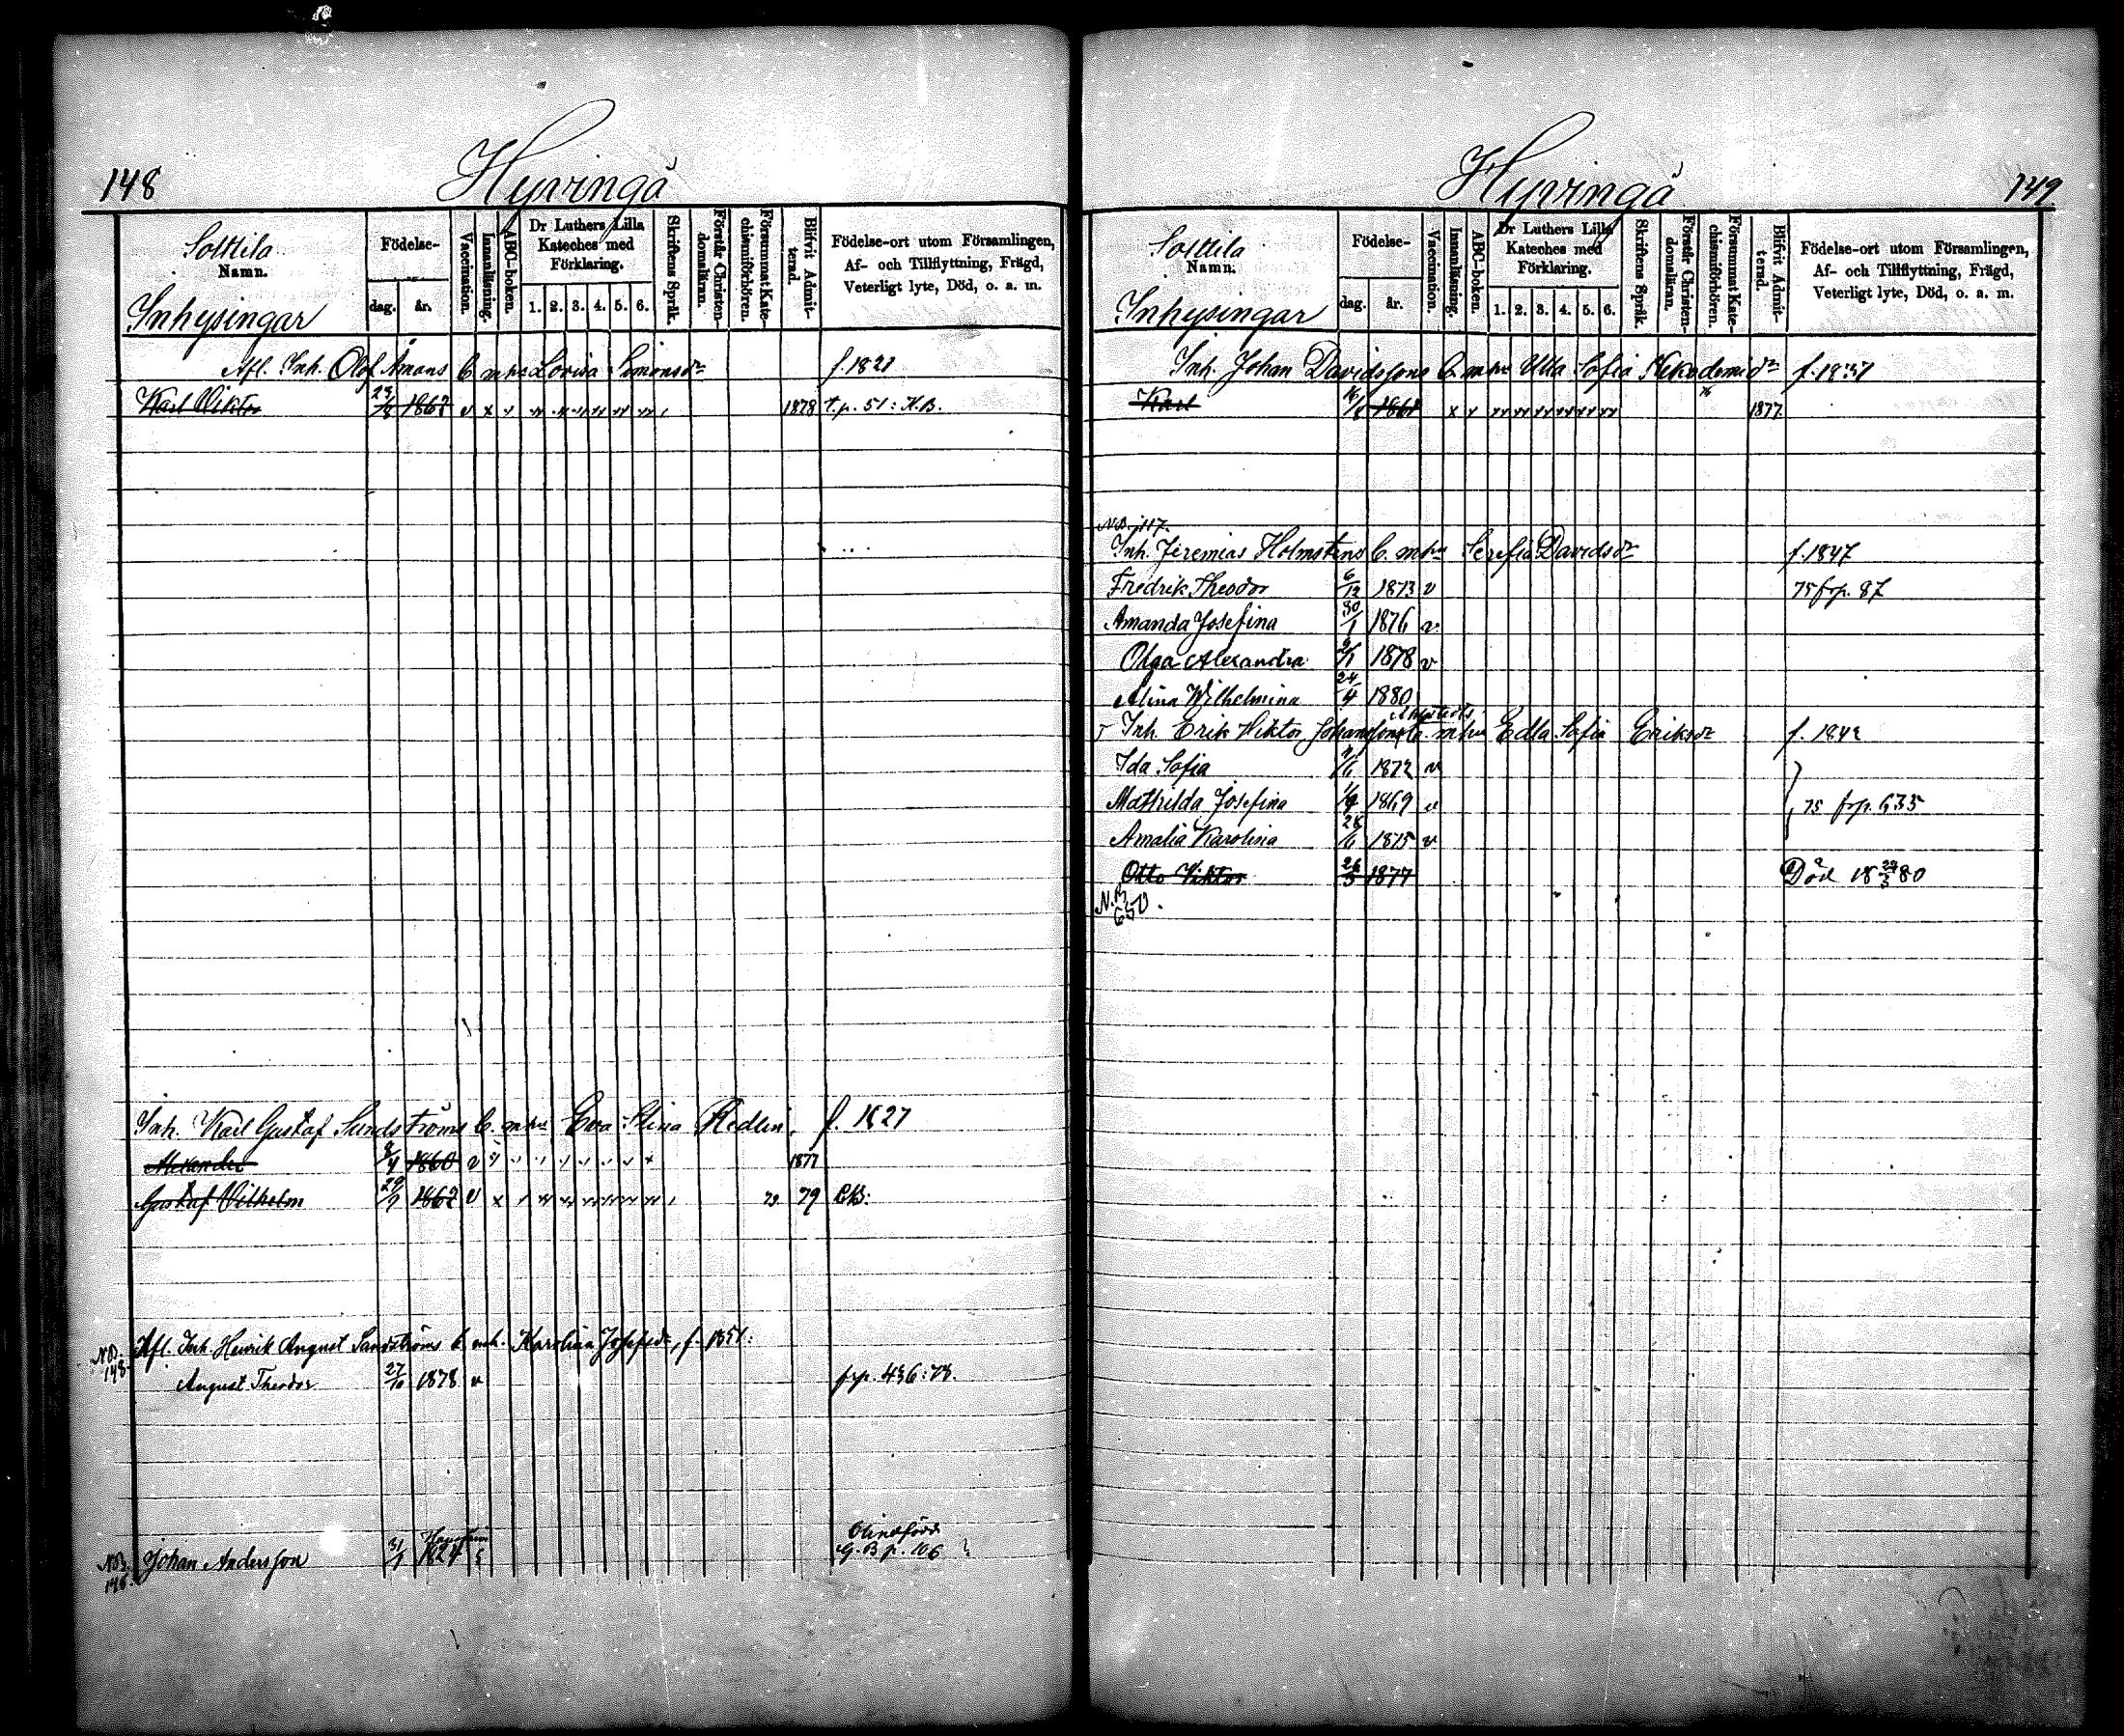 148
Hyvingä
Solttila
Namn.
Inhysingar
Födelse-
dag.
år.
Vaccination.
Innanläsning.
ABC-boken.
Dr Luthers Lilla
Kateches med
Förklaring.
1. 2. 3. 4. 5. 6.
Skriftens Språk.
Förstår Christen-
domsläran.
Försummat Kate-
chismiförhören.
Blifvit Admit-
terad.
Födelse-ort utom Församlingen,
Af- och Tillflyttning, Frägd,
Veterligt lyte, Död, o. a. m.
Afl. Inh. Olof Åmans b. m hu Lovisa Simonsdr f. 1821
Karl Viktor 23/8 1863 v x v 1878 t. p. 51: K.B.
Inh. Karl Gustaf Sundströms b. m hu Eva Stina Redlin. f. 1827
Alexander 1860 v 1877
Gustaf Vilhelm 29/7 1862 v x 79 79
NB. 148. Afl. Inh. Henrik August Sandströms b. m h. Karolina Josefsdr, f. 1851.
August Theodor 27/10 1878 v frp. 436: 78.
NB. 146. Johan Andersson 31/1 1824 G. B p. 106
149
Hyvingä
Solttila
Namn.
Inhysingar
Födelse-
dag.
år.
Vaccination.
Innanläsning.
ABC-boken.
Dr Luthers Lilla
Kateches med
Förklaring.
1. 2. 3. 4. 5. 6.
Skriftens Språk.
Förstår Christen-
domsläran.
Försummat Kate-
chismiförhören.
Blifvit Admit-
terad.
Födelse-ort utom Församlingen,
Af- och Tillflyttning, Frägd,
Veterligt lyte, Död, o. a. m.
Inh. Johan Davidssons b. m hu Ulla Sofia Nikodemidr f. 1837
Karl 16/8 1861 x v 76 1877.
N.B. 117.
Inh. Jeremias Holmstens b. m hu Serefia Davidsdr f. 1847
Fredrik Theodor 6/12 1873 v 75 frp. 87
Amanda Josefina 30/1 1876 v
Olga Alexandra 1878 v
Alina Wilhelmina 24/4 1880
Inh. Erik Viktor Johanssons b. m hu Edla Sofia Eriksdr f. 1842
Ida Sofia 1872 v
Mathilda Josefina 1869 v 75 frp. 635
Amalia Karolina 28/6 1875 v
Otto Viktor 26/3 1877 Död 18 24/3 80
N.B. 650.